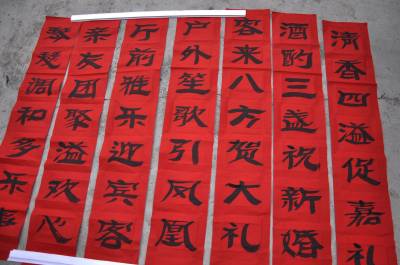 清香四溢促嘉礼
酒酌三盏祝新婚
客来八方贺大礼
户外笙歌引凤凰
厅前雅乐迎宾客
亲友团聚溢欢心
琴瑟调和多乐事